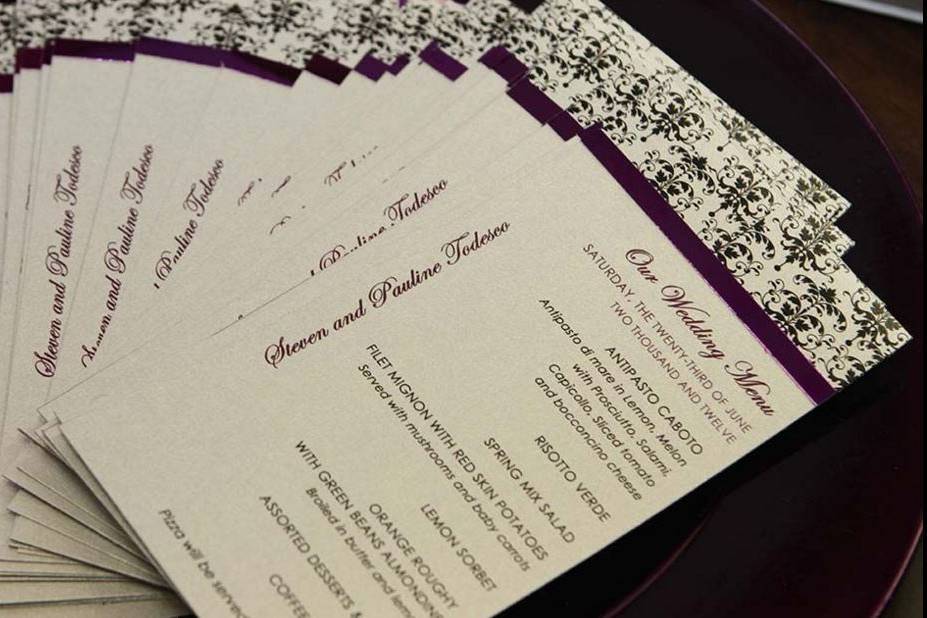 Our Wedding Menu
SATURDAY, THE TWENTY-THIRD OF JUNE
TWO THOUSAND AND TWELVE
ANTIPASTO CABOTO
Antipasto di mare in Lemon, Melon
with Prosciutto, Salami,
Capicollo, Sliced tomato
and bocconcino cheese
RISOTTO VERDE
SPRING MIX SALAD
FILET MIGNON WITH RED SKIN POTATOES
Served with mushrooms and baby carrots
LEMON SORBET
ORANGE ROUGHY
WITH GREEN BEANS ALMONDINE
Broiled in butter and
ASSORTED DESSERTS &
Pizza will be served
Steven and Pauline Todesco
Pauline Todesco
and Pauline Todesco
and Pauline Todesco
Steven and Pauline Todesco